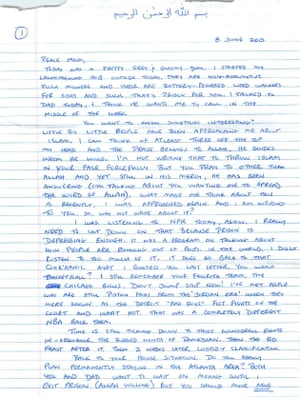 بسم الله الرحمن الرحيم
1
8 JUNE 2015
PEACE MOM,
TODAY WAS A PRETTY GOOD JOB. I STARTED MY
LANDSCAPING JOB OUTSIDE TODAY. THEY ARE NON-AUTOMATIC
PUSH MOWERS AND THERE ARE BATTERY-POWERED WEED WACKERS
FOR SIDES AND SUCH. THAT'S PROLLY FOR NOW. I TALKED TO
DAD TODAY, I THINK HE WANTS ME TO CALL IN THE
MIDDLE OF THE WEEK.
YOU WANT TO KNOW SOMETHING INTERESTING?
LITTLE BY LITTLE PEOPLE HAVE BEEN APPROACHING ME ABOUT
ISLAM. I CAN THINK OF AT LEAST THREE OFF THE TOP OF
MY HEAD AND THE PRAISE BELONGS TO ALLAH, HE GUIDES
WHOM HE WILLS. I'M NOT WRITING THAT TO THROW ISLAM
IN YOUR FACE FORCEFULLY BUT YOU PRAY TO OTHER THAN
ALLAH AND YET STILL IN HIS MERCY, HE HAS BEEN
ANSWERING
THE WORDS OF ALLAH). WHAT MADE ME THINK ABOUT THIS
IS RECENTLY, I WAS APPROACHED AGAIN AND I AM WRITING
TO YOU, SO, WHY NOT WRITE ABOUT IT?
I WAS LISTENING TO NPR TODAY, AGAIN. I REALLY
NEED TO CUT DOWN ON THAT BECAUSE PRISON IS
DEPRESSING ENOUGH. IT WAS A PROGRAM ON TALKING ABOUT
HOW PEOPLE ARE RUNNING OUT OF FOOD IN THE WORLD. I DIDN'T
LISTEN TO TOO MUCH OF IT. IT DOES GO BACK TO THAT
THAT I QUOTED YOU LAST LETTER. YOU WATCH
BASKETBALL? I STILL REMEMBER YOUR FAVORITE TEAM, THE
CHICAGO BULLS. DON'T JUMP SHIP NOW! I'VE MET PEOPLE
WHO ARE STILL PISTON FANS FROM THE JORDAN ERA WHEN THEY
WERE KNOWN AS THE DETROIT "BAD BOYS" FIST FIGHTS ON THE
COURT AND WHAT NOT. THAT WAS A COMPLETELY DIFFERENT
NBA BACK THEN.
TIME IS STILL TICKING DOWN TO THOSE WONDERFUL EVENTS
THE BLESSED MONTH OF RAMADAAN, THEN THE EID
FEAST AFTER IT. THEN 2 WEEKS LATER, CUSTODY CLASSIFICATION.
BACK TO YOUR HOUSE SITUATION. DO YOU REALLY
PLAN PERMANENTLY STAYING IN THE ATLANTA AREA? BOTH
YOU AND DAD WANT TO WAIT FOR MOVING UNTIL I
EXIT PRISON (ALLAH WILLING) BUT YOU SHOULD MOVE NOW